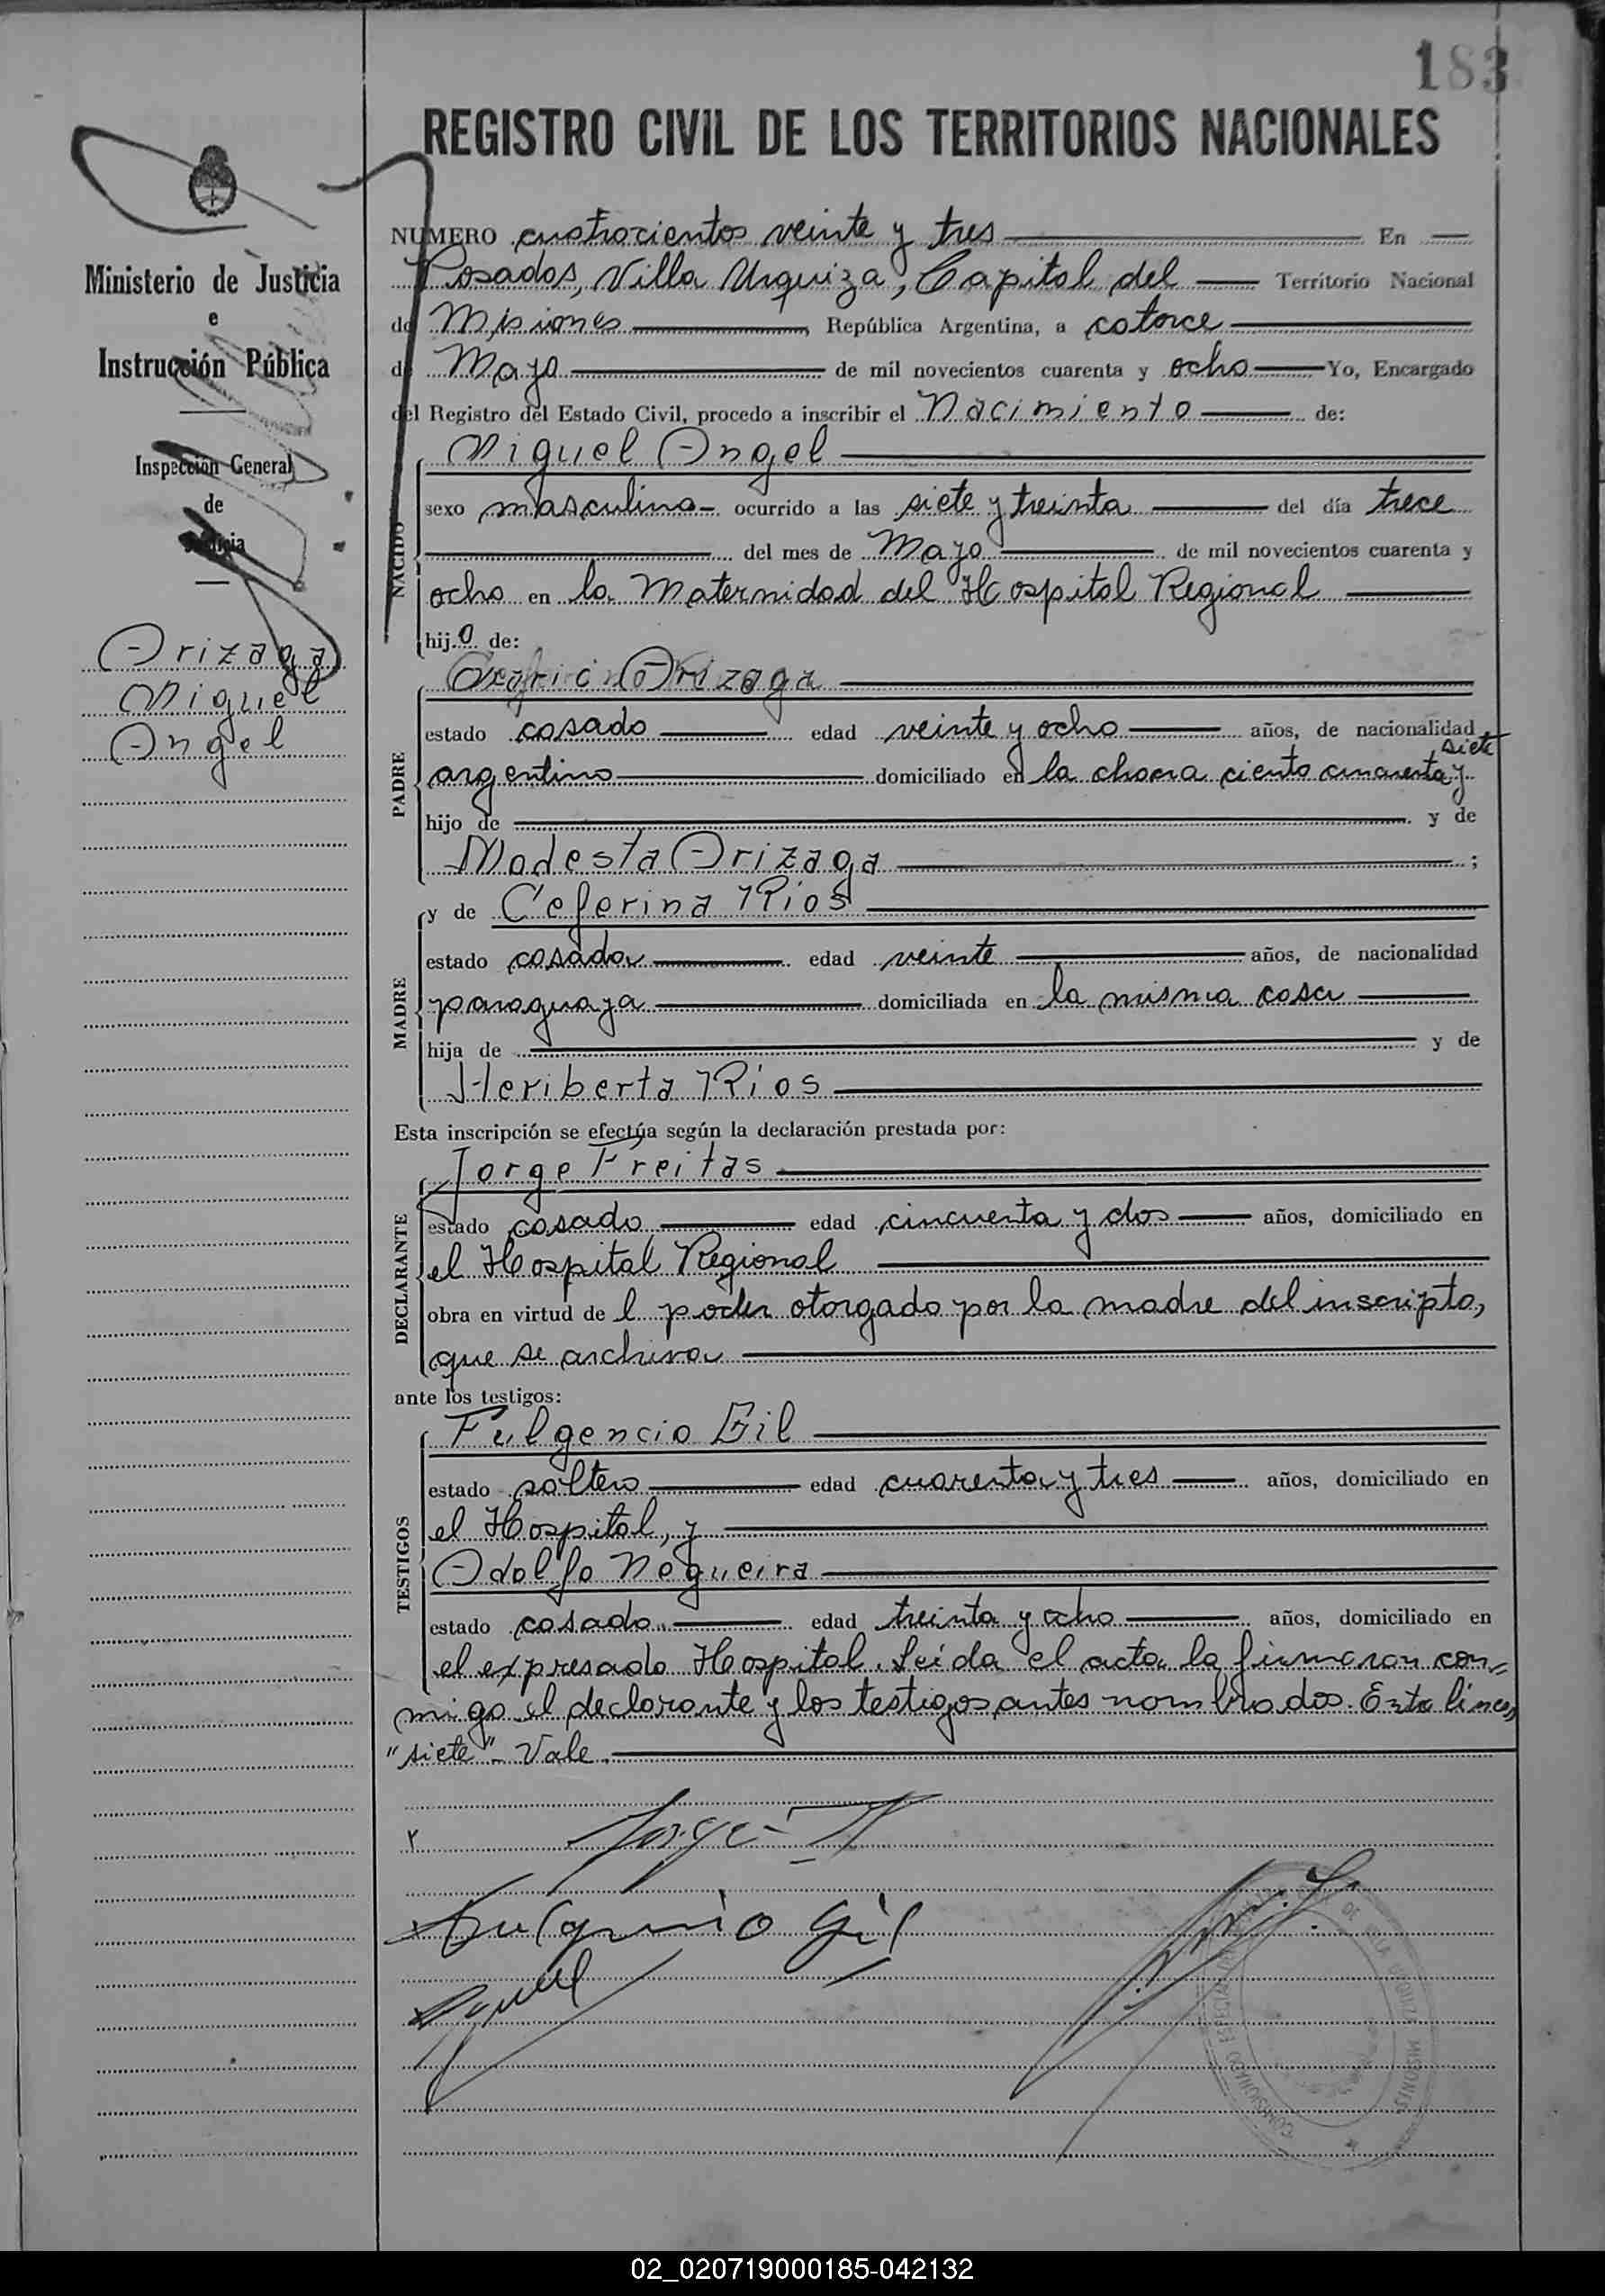 183
REGISTRO CIVIL DE LOS TERRITORIOS NACIONALES
Ministerio de Justicia
e
Instrucción Pública
Inspección General
de
Justicia
Arizaga
Miguel
Angel
NUMERO cuatrocientos veinte y tres En
Posadas, Villa Urquiza, Capital del Territorio Nacional
de Misiones, República Argentina, a catorce
de Mayo de mil novecientos cuarenta y ocho Yo, Encargado
del Registro del Estado Civil, procedo a inscribir el Nacimiento de:
NACIDO
Miguel Angel
sexo masculino ocurrido a las siete y treinta del día trece
del mes de Mayo de mil novecientos cuarenta y
ocho en la Maternidad del Hospital Regional
hijo de:
PADRE
Arizaga
estado casado edad veinte y ocho años, de nacionalidad
siete
argentino domiciliado en la chacra ciento cincuenta y
hijo de y de
Modesta Arizaga ;
MADRE
y de Ceferina Rios
estado casada edad veinte años, de nacionalidad
paraguaya domiciliada en la misma casa
hija de y de
Heriberta Rios
Esta inscripción se efectúa según la declaración prestada por:
DECLARANTE
Jorge Freitas
estado casado edad cincuenta y dos años, domiciliado en
el Hospital Regional
obra en virtud de l poder otorgado por la madre del inscripto,
que se archiva
ante los testigos:
TESTIGOS
Fulgencio Gil
estado soltero edad cuarenta y tres años, domiciliado en
el Hospital, y
Adolfo Nogueira
estado casado edad treinta y ocho años, domiciliado en
el expresado Hospital. Leida el acta la firmaron con=
migo el declarante y los testigos antes nombrados. Entre lineas,
"siete" - Vale.
Jorge
Fulgencio Gil
02_020719000185-042132